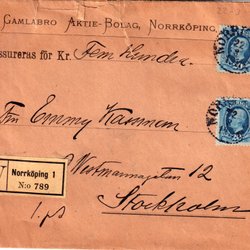 Gamlabro Aktie-Bolag, Norrköping,
ssureras för Kr. Fem hundra
Fru Emmy
V Norrköping 1
N:o 789
Westmannagatan 12
Stockholm